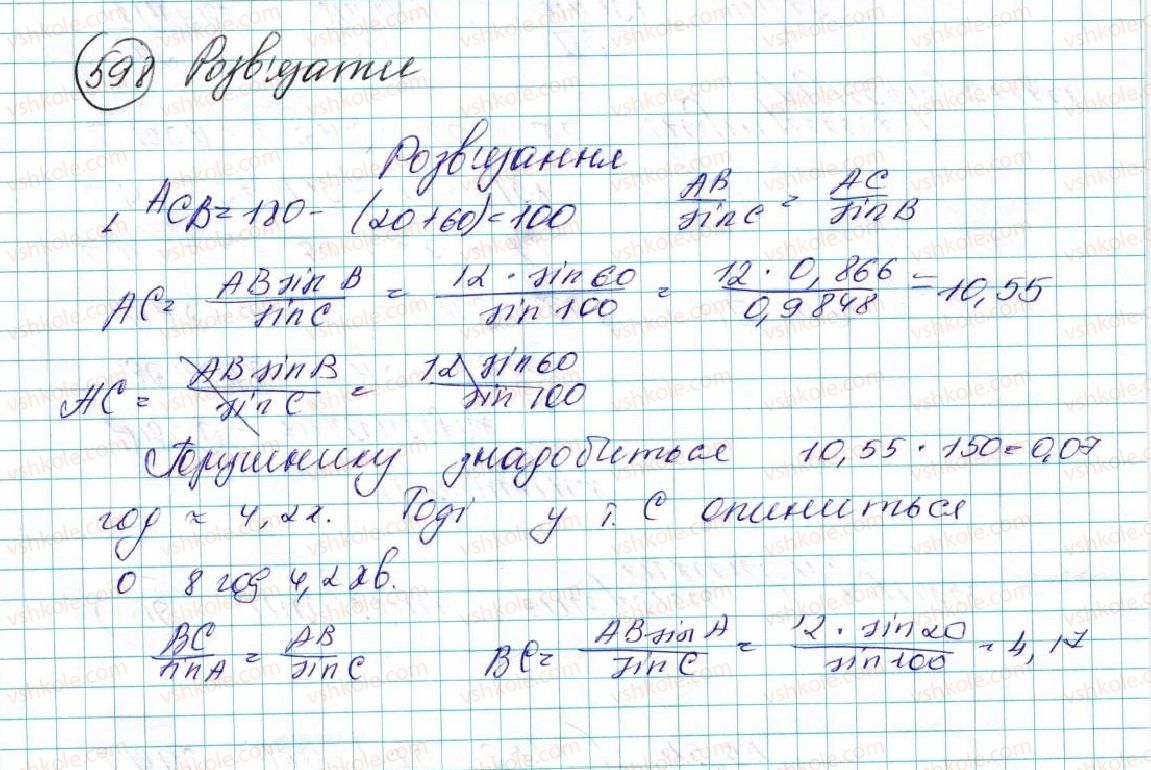 598 Розв'язати
Розв'язання
∠ ACB = 180 - (20+60) = 100   AB/sin C = AC/sin B
AC = AB sin B/sin C = 12 · sin 60/sin 100 = 12 · 0,866/0,9848 = 10,55
AC = AB sin B/sin C = 12 sin 60/sin 100
Порушнику знадобиться 10,55 · 150 = 0,07
год ≈ 4,2 х. Тоді у т. C опиниться
о 8 год 4,2 хв.
BC/sin A = AB/sin C   BC = AB sin A/sin C = 12 · sin 20/sin 100 = 4,17
vshkole.com